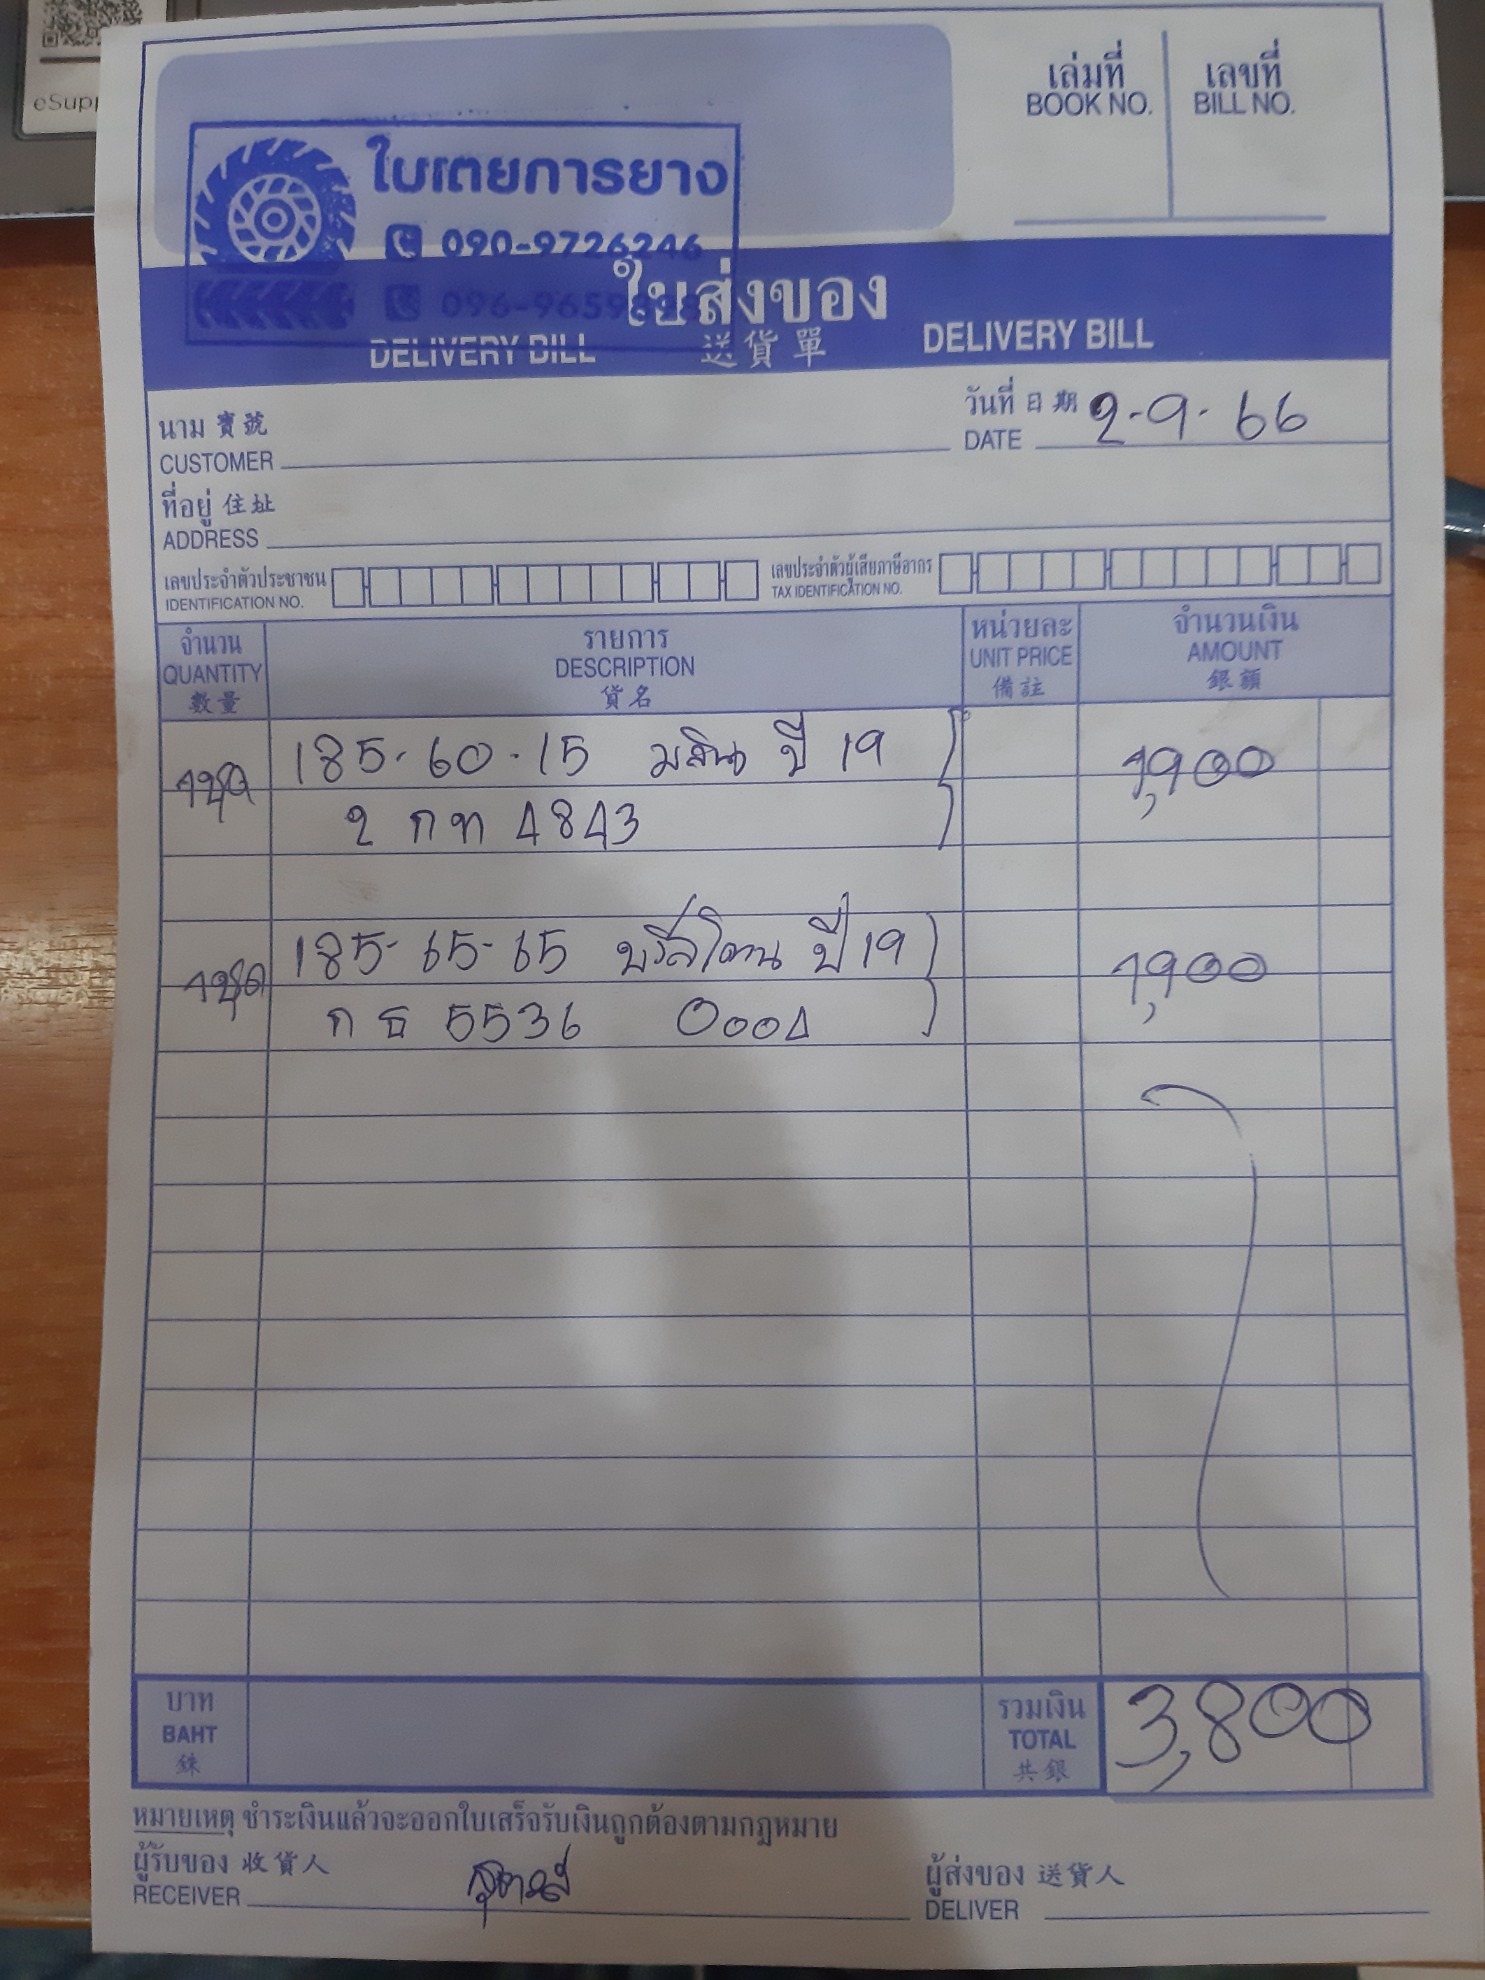 eSupp
เล่มที่
BOOK NO.
เลขที่
BILL NO.
ใบเตยการยาง
090-9726246
096-9659898
ใบส่งของ
DELIVERY BILL 送貨單 DELIVERY BILL
นาม 寶號
CUSTOMER
วันที่ 日期 2-9-66
DATE
ที่อยู่ 住址
ADDRESS
เลขประจำตัวประชาชน
IDENTIFICATION NO.
เลขประจำตัวผู้เสียภาษีอากร
TAX IDENTIFICATION NO.
จำนวน รายการ หน่วยละ จำนวนเงิน
QUANTITY DESCRIPTION UNIT PRICE AMOUNT
數量 貨名 備註 銀額
1ชุด 185-60-15 มสิน ปี 19 1,900
2 กท 4843
1ชุด 185-65-15 บริสโตน ปี 19 1,900
กธ 5536 0004
บาท
BAHT
銖
รวมเงิน
TOTAL
共銀
3,800
หมายเหตุ ชำระเงินแล้วจะออกใบเสร็จรับเงินถูกต้องตามกฎหมาย
ผู้รับของ 收貨人
RECEIVER
ผู้ส่งของ 送貨人
DELIVER